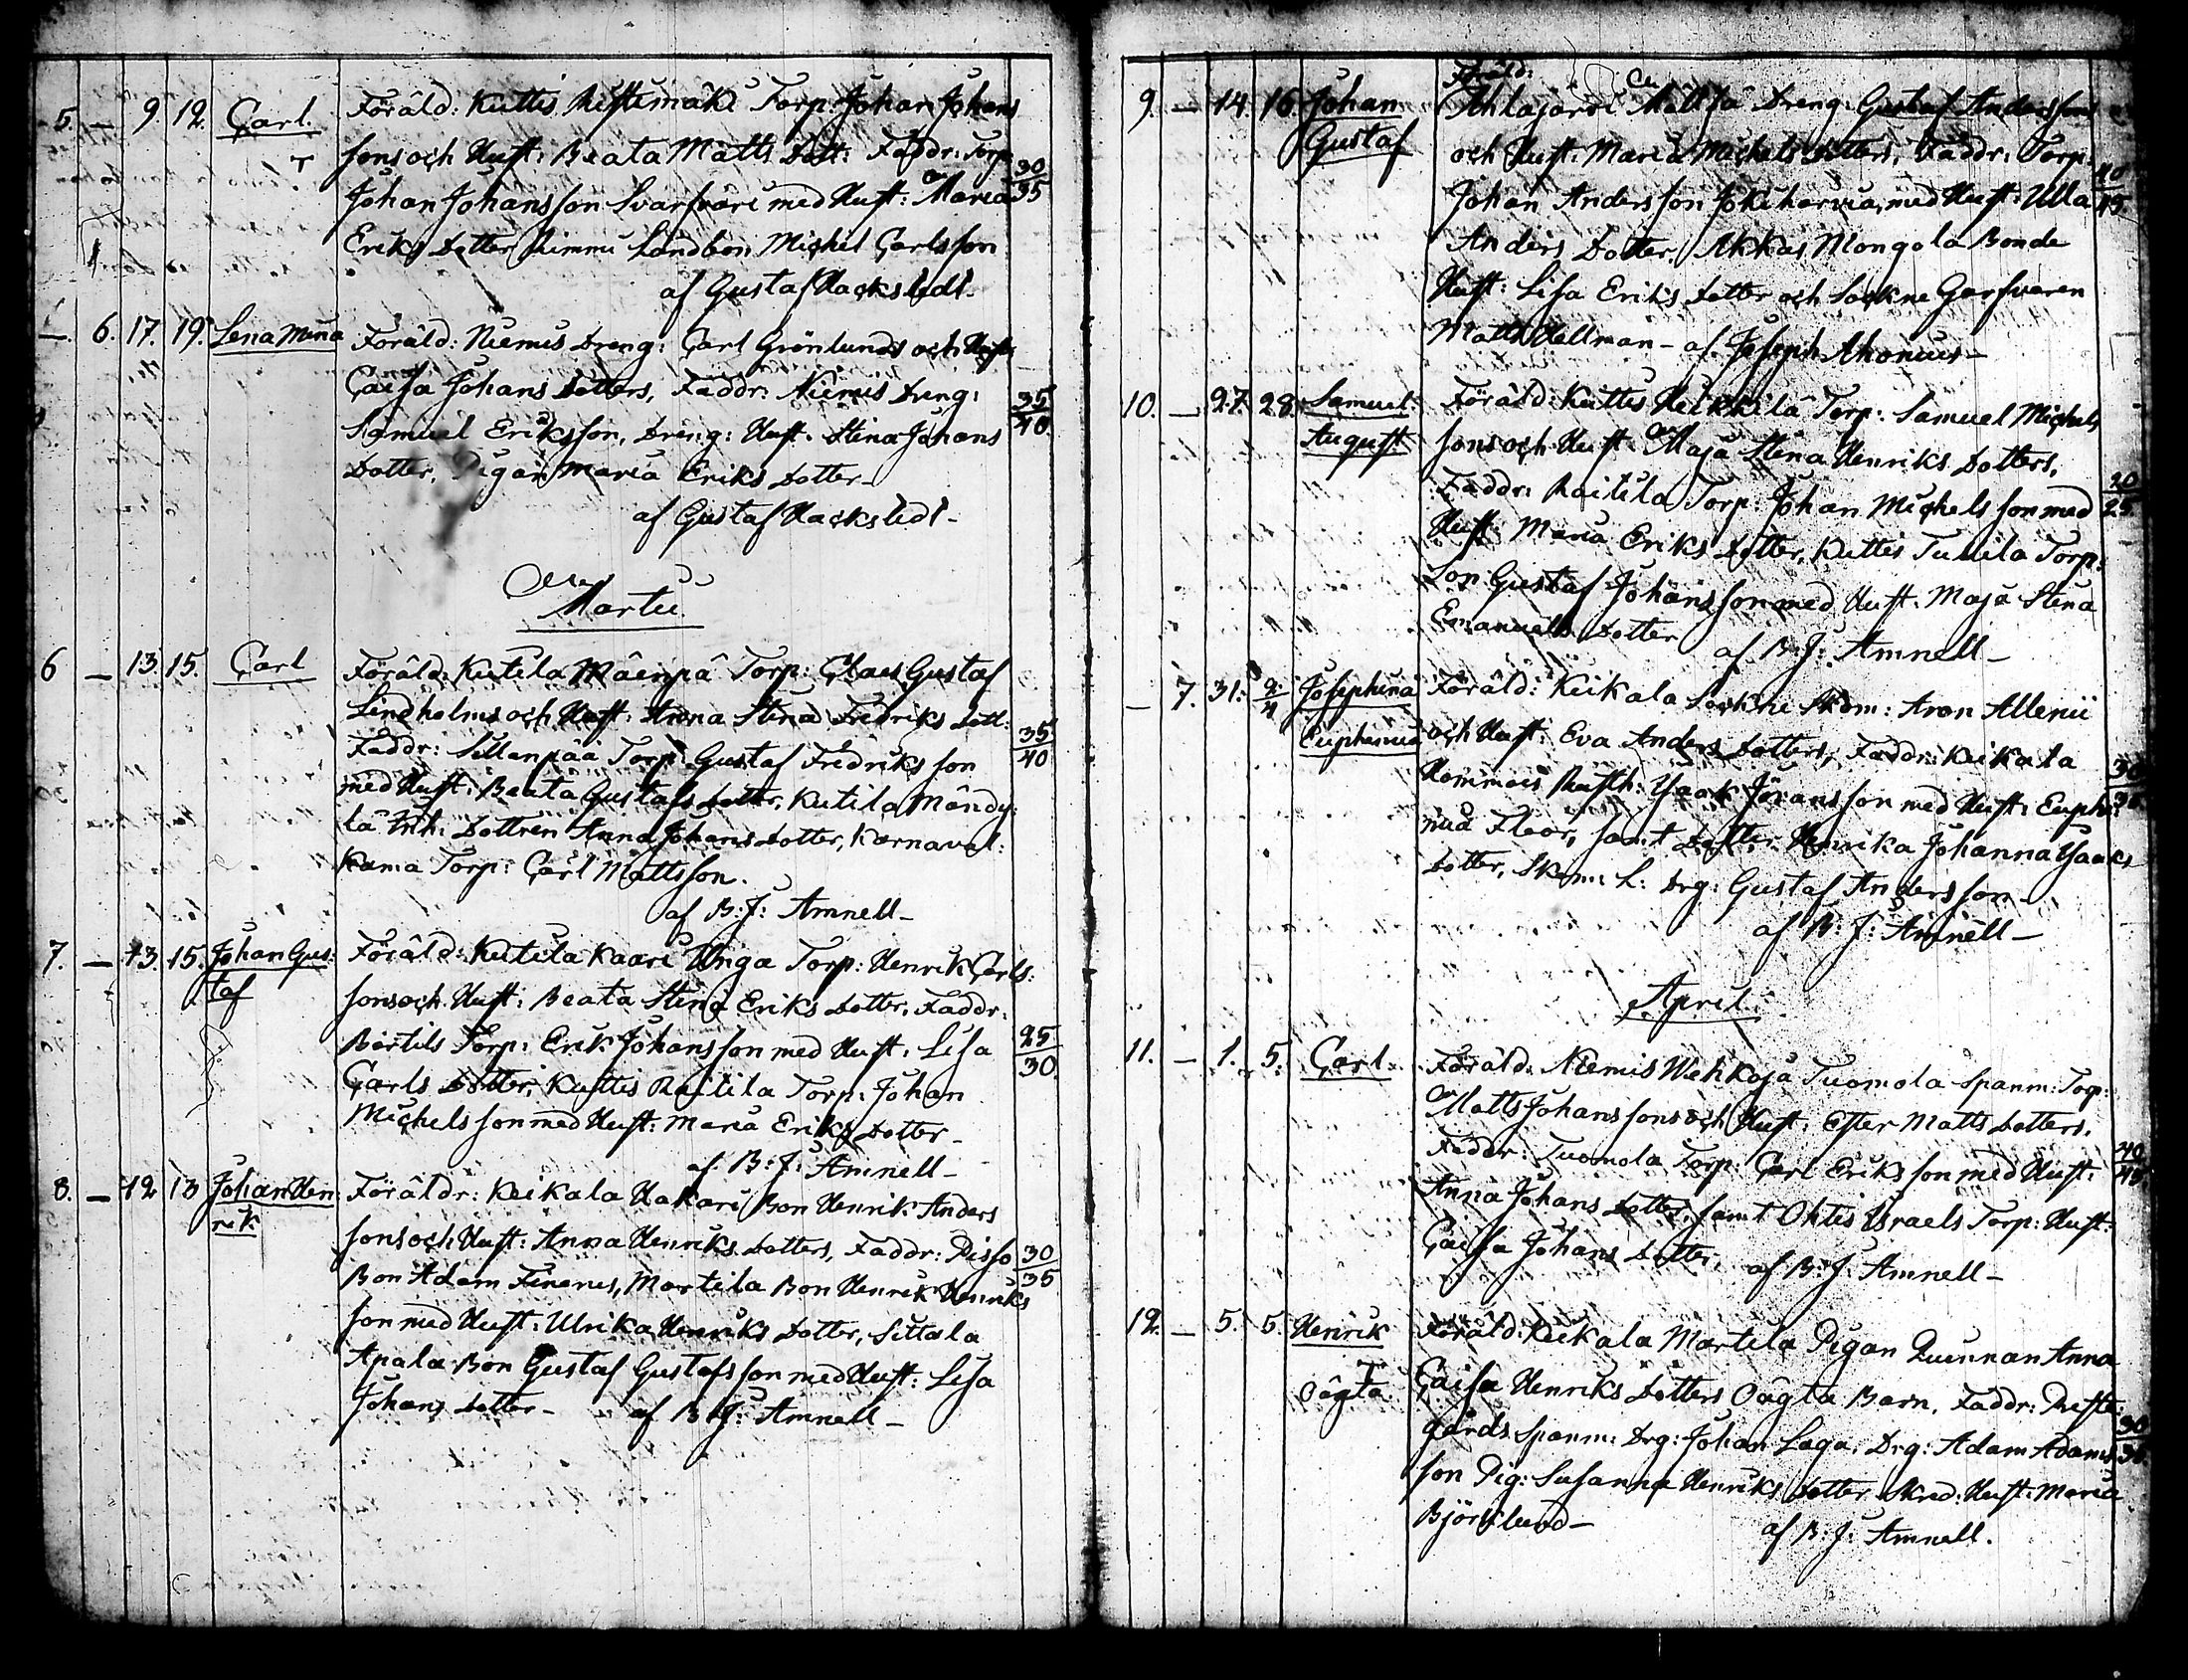 5. — 9. 12. Carl. Föräld: Kuttis Ristimäki Torp. Johan Johans
sons och Hust: Beata Matts Dott: Faddr: Torp 30/35
Johan Johansson Svarfvare med Hust: Maria
Eriks Dotter Landbon Michel Carlsson
af Gustaf Hackstedt.
— 6. 17. 19. Lena Mina Föräld: Niemis Dreng: Carl Grönlunds och Hust:
Caisa Johans Dotters, Faddr: Niemis Dreng: 35/40
Samuel Eriksson, Dreng: Hust. Stina Johans
Dotter, Pigan Maria Eriks Dotter —
af Gustaf Hackstedt —
Martii
6 — 13. 15. Carl Föräld: Kutila Mäenpä Torp: Claes Gustaf
Lindholms och Hust: Anna Stina Fredriks Dott: 35/40
Faddr: Sillanpää Torp. Gustaf Fredriksson
med Hust: Beata Gustafs Dotter, Kutila Mändy:
lä Inh: Dottren Anna Johans Dotter, Karnaval:
kama Torp: Carl Mattsson.
af B: J: Amnell —
7. — 13. 15. Johan Gus: Föräld: Kutila Kaari Unga Torp: Henrik Carls:
taf sons och Hust: Beata Stina Eriks Dotter, Faddr:
Bertils Torp: Erik Johansson med Hust: Lisa 25/30.
Carls Dotter, Kuttis Raitila Torp: Johan
Michelsson med Hust: Maria Eriks Dotter —
af B: J: Amnell —
8. — 12 13 Johan Hen: Föräldr: Keikala Hakari Bon Henrik Anders
rik sons och Hust: Anna Henriks Dotters, Faddr: Pisso 30/35
Bon Adam Finerus, Martila Bon Henrik Henriks
son med Hust: Ulrika Henriks Dotter, Sittala
Apala Bon Gustaf Gustafsson med Hust: Lisa
Johans Dotter — af B: J: Amnell —
9. — 14. 16. Johan Föräld:
Gustaf Ahlajärvi Mällilä Dreng: Gustaf Anderssons
och Hust: Maria Michels Dotters, Faddr: Torp: 40/45
Johan Andersson Jokiharvia, med Hust: Ulla
Anders Dotter, Akkas Mongola Bonde
Hust: Lisa Eriks Dotter och Sockne Garfvaren
Matts Hellman — af Joseph Ahonius —
10. — 27. 28. Samuel Föräld: Kuttis Heikkilä Torp: Samuel Michels
August sons och Hust: Maja Stina Henriks Dotters,
Faddr: Raitila Torp: Johan Michelsson med 20/25.
Hust: Maria Eriks Dotter, Kuttis Tuulila Torp:
Son Gustaf Johansson med Hust: Maja Stina
Emanuels Dotter af B: J: Amnell —
— 7. 31. 2/4 Josephina Föräld: Keikala Sockne Skom: Aron Allenii
Euphemia och Hust: Eva Anders Dotters, Faddr: Keikala
Hommais Rusth: Isaak Johansson med Hust: Euphe: 30
mia Fleor, samt Dotter Henrika Johanna Isaaks
Dotter, Skom: L: Drg: Gustaf Andersson
af B: J: Amnell —
April.
11. — 1. 5. Carl Föräld: Niemis Wehkoja Tuomola Spanm: Torp:
Matts Johanssons och Hust: Ester Matts Dotters.
Faddr: Tuomola Torp: Carl Eriksson med Hust: 40/45.
Anna Johans Dotter, samt Ohtis Israels Torp: Hust:
Caisa Johans Dotter. af B: J: Amnell —
12. — 5. 5. Henrik Föräld: Keikala Martila Pigan Quinnan Anna
Oägta Caisa Henriks Dotters Oägta Barn, Faddr: Preste:
gårds Spanm: Drg: Johan Laga. Drg: Adam Adams 30
son Pig: Susanna Henriks Dotter Skred: Hust: Maria
Björklund — af B: J: Amnell.